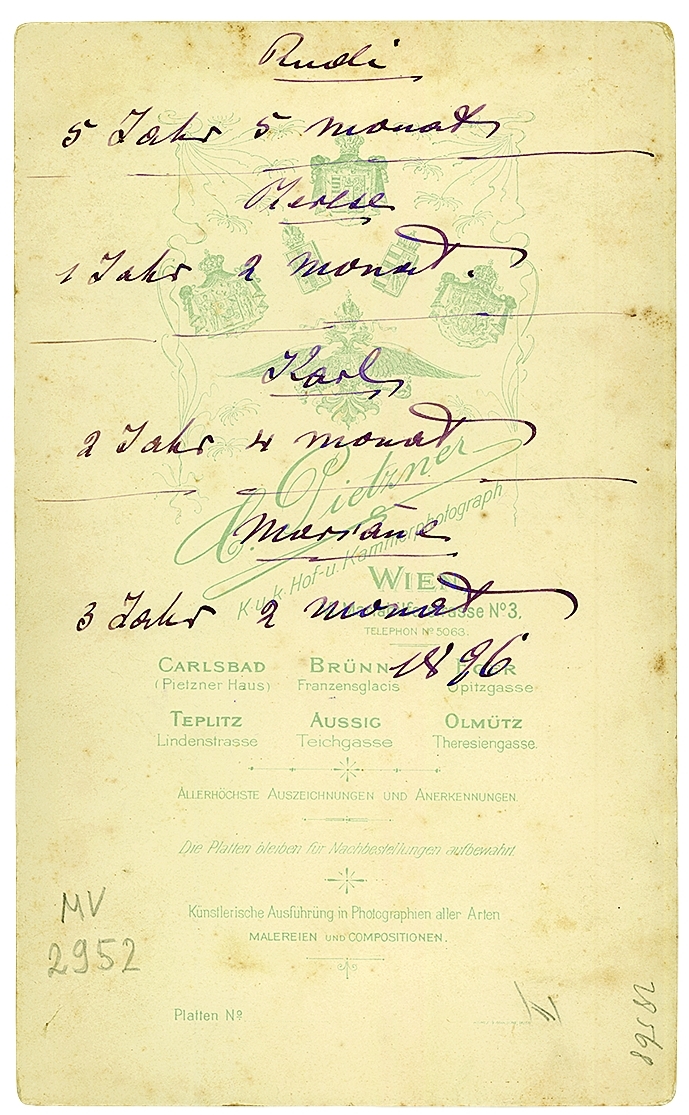 Rudi
5 Jahr 5 monat
Therese
1 Jahr 2 monat.
Karl
2 Jahr 4 monat
C. Pietzner
Mariane
K. u. k. Hof- u. Kammerphotograph
WIEN
3 Jahr 2 monat
strasse Nº 3.
TELEPHON Nº 5063.
1896
CARLSBAD BRÜNN EGER
(Pietzner Haus) Franzensglacis Opitzgasse
TEPLITZ AUSSIG OLMÜTZ
Lindenstrasse Teichgasse Theresiengasse.
ALLERHÖCHSTE AUSZEICHNUNGEN UND ANERKENNUNGEN.
Die Platten bleiben für Nachbestellungen aufbewahrt.
Künstlerische Ausführung in Photographien aller Arten
MALEREIEN UND COMPOSITIONEN.
MV
2952
Platten Nº
II